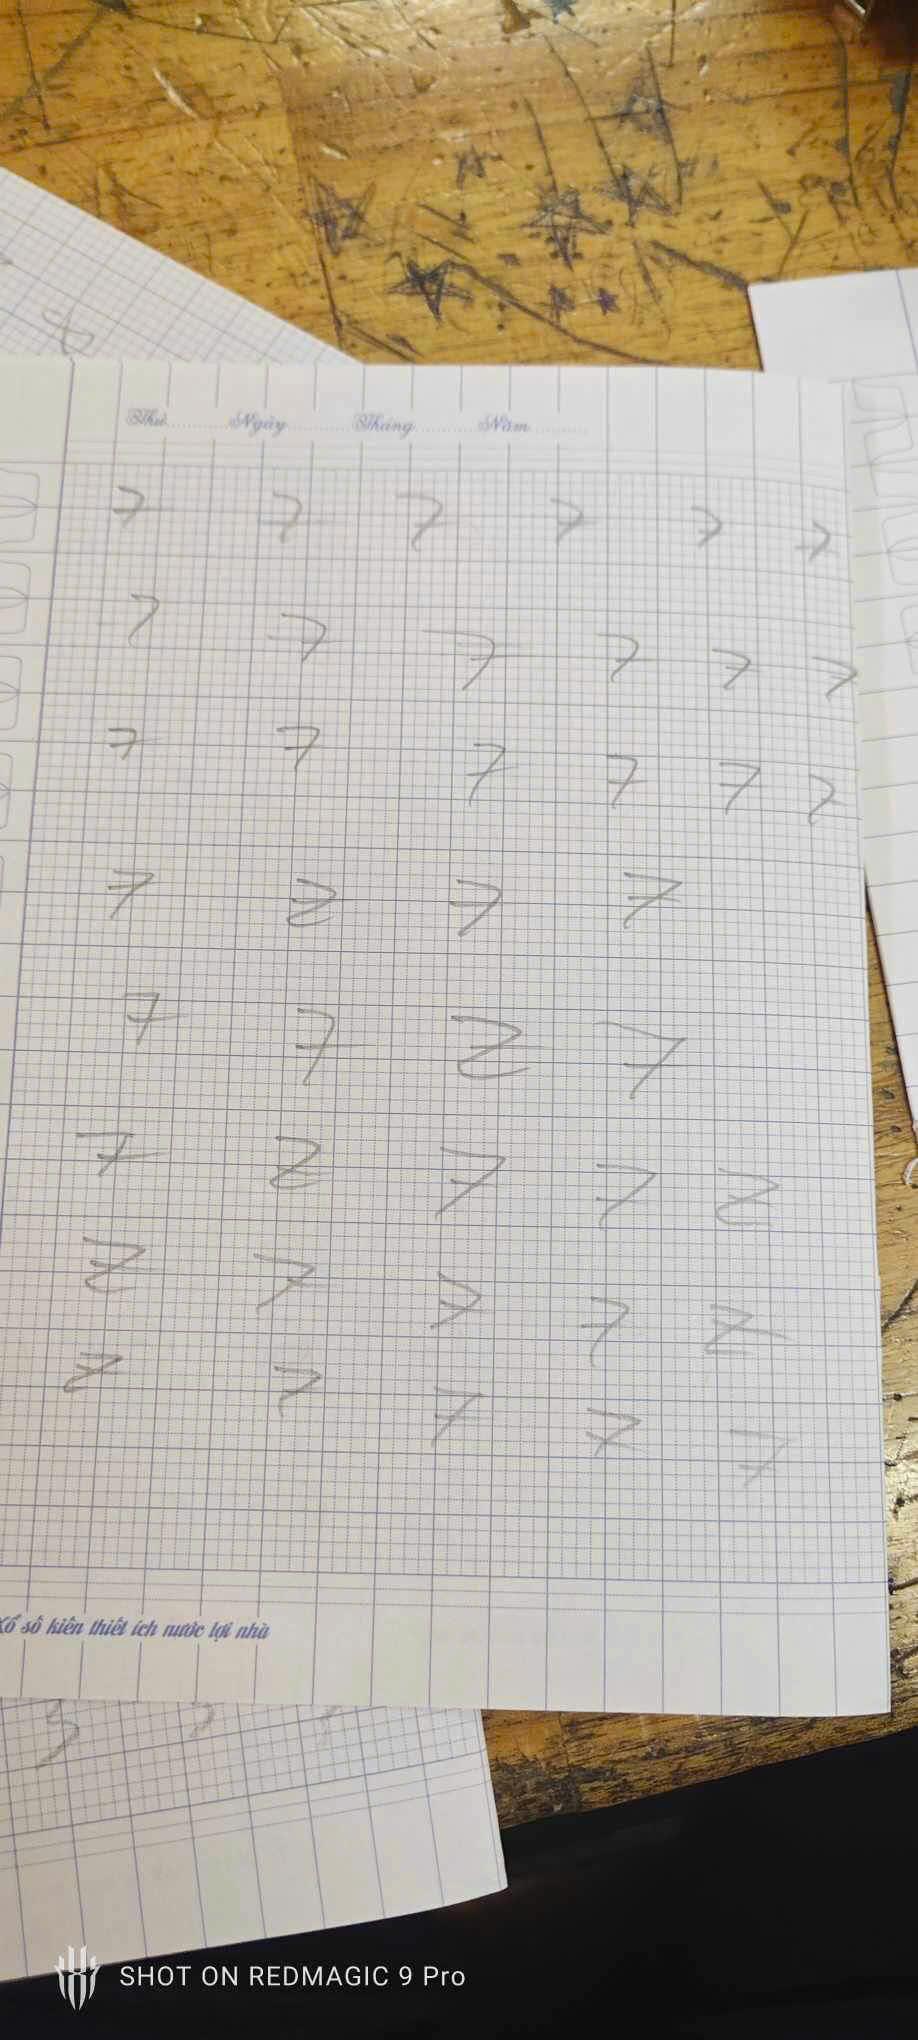 8
Thứ.......... Ngày.......... Tháng.......... Năm..........
7 7 7 7 7 7
7 7 7 7 7 7
7 7 7 7 7 7
7 Z 7 7
7 7 Z 7
7 Z 7 7 Z
Z 7 7 7 Z
Z 7 7 7 7
Xổ số kiến thiết ích nước lợi nhà
3 3
SHOT ON REDMAGIC 9 Pro